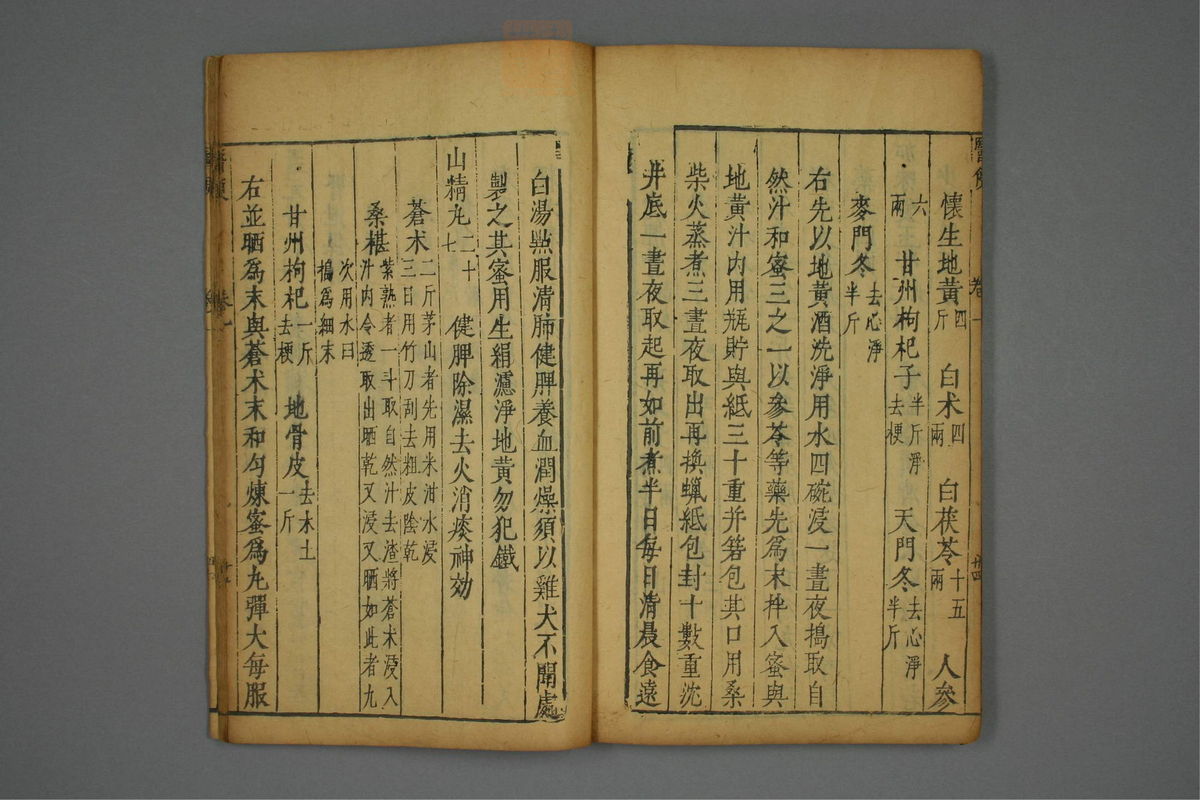 懷生地黃四斤　白术四兩　白茯苓十五兩　人參
六兩　甘州枸杞子半斤淨去梗　天門冬去心淨半斤
麥門冬去心淨半斤
右先以地黃酒洗淨用水四碗浸一晝夜搗取自
然汁和蜜三之一以參苓等藥先爲末拌入蜜與
地黃汁内用瓶貯與紙三十重并箬包其口用桑
柴火蒸煮三晝夜取出再換蠟紙包封十數重沈
井底一晝夜取起再如前煮半日每日清晨食遠
白湯點服清肺健脾養血潤燥須以雞犬不聞處
製之其蜜用生絹濾淨地黃勿犯鐵
山精丸二十七　健脾除濕去火消痰神効
蒼术二斤茅山者先用米泔水浸三日用竹刀刮去粗皮陰乾
桑椹紫熟者一斗取自然汁去渣將蒼术浸入汁内令透取出晒乾又浸又晒如此者九
次用水臼搗爲細末
甘州枸杞一斤去梗　地骨皮去木土一斤
右並晒爲末與蒼术末和匀煉蜜爲丸彈大每服
卷一
卷一